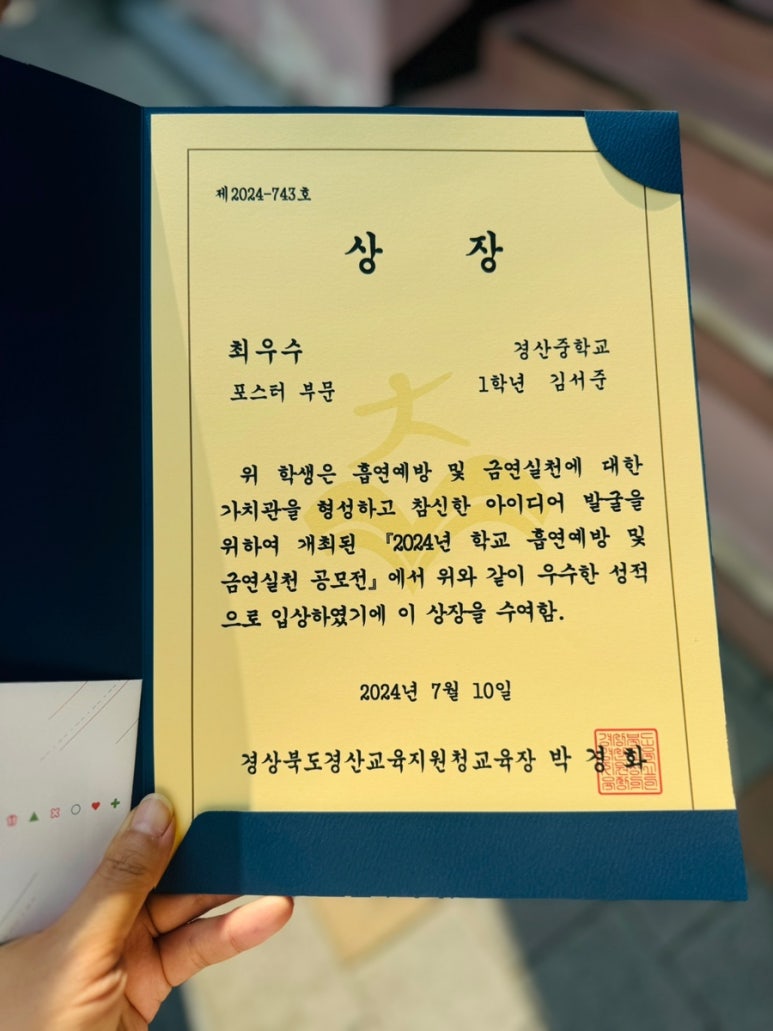 제2024-743호
상 장
최우수 경산중학교
포스터 부문 1학년 김서준
위 학생은 흡연예방 및 금연실천에 대한
가치관을 형성하고 참신한 아이디어 발굴을
위하여 개최된 『2024년 학교 흡연예방 및
금연실천 공모전』에서 위와 같이 우수한 성적
으로 입상하였기에 이 상장을 수여함.
2024년 7월 10일
경상북도경산교육지원청교육장 박 경 화